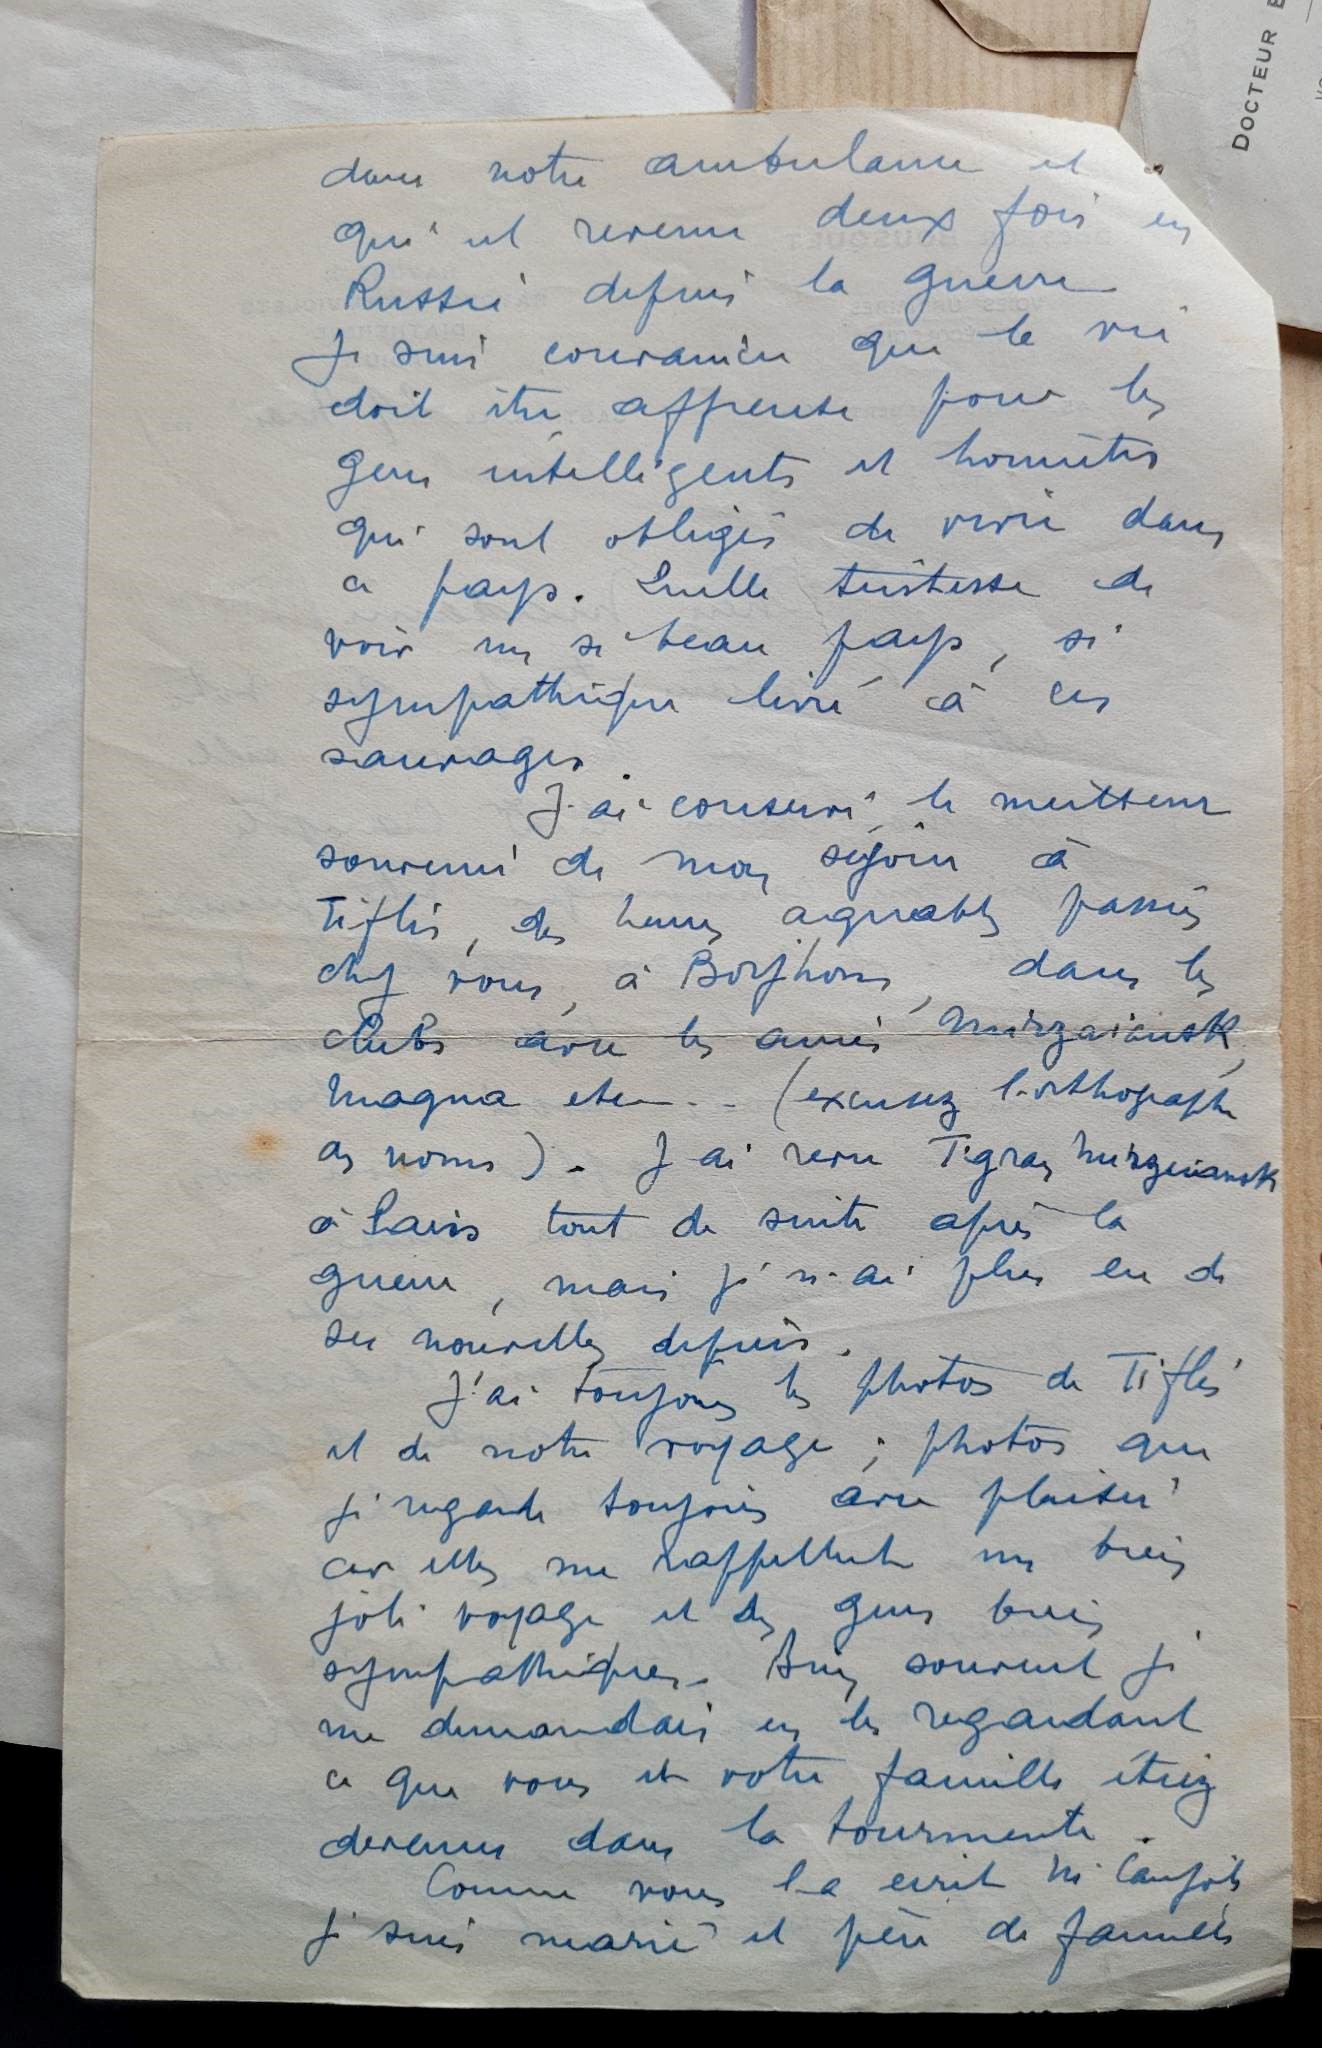 DOCTEUR
dans notre ambulance et
qui est revenu deux fois en
Russie depuis la guerre
Je suis convaincu que la vie
doit être affreuse pour les
gens intelligents et honnêtes
qui sont obligés de vivre dans
ce pays. Quelle tristesse de
voir un si beau pays, si
sympathique livré à ces
sauvages.
J'ai conservé le meilleur
souvenir de mon séjour à
Tiflis, des heures agréables passées
chez vous, à Borjhom, dans les
clubs avec les amis
Magna etc... (excusez l'orthographe
des noms). J'ai revu Tigran
à Paris tout de suite après la
guerre, mais je n'ai plus eu de
ses nouvelles depuis.
J'ai toujours les photos de Tiflis
et de notre voyage; photos que
je regarde toujours avec plaisir
car elles me rappellent un bien
joli voyage et des gens bien
sympathiques. Bien souvent je
me demandais en les regardant
ce que vous et votre famille étiez
devenus dans la tourmente.
Comme vous l'a écrit
je suis marié et père de famille